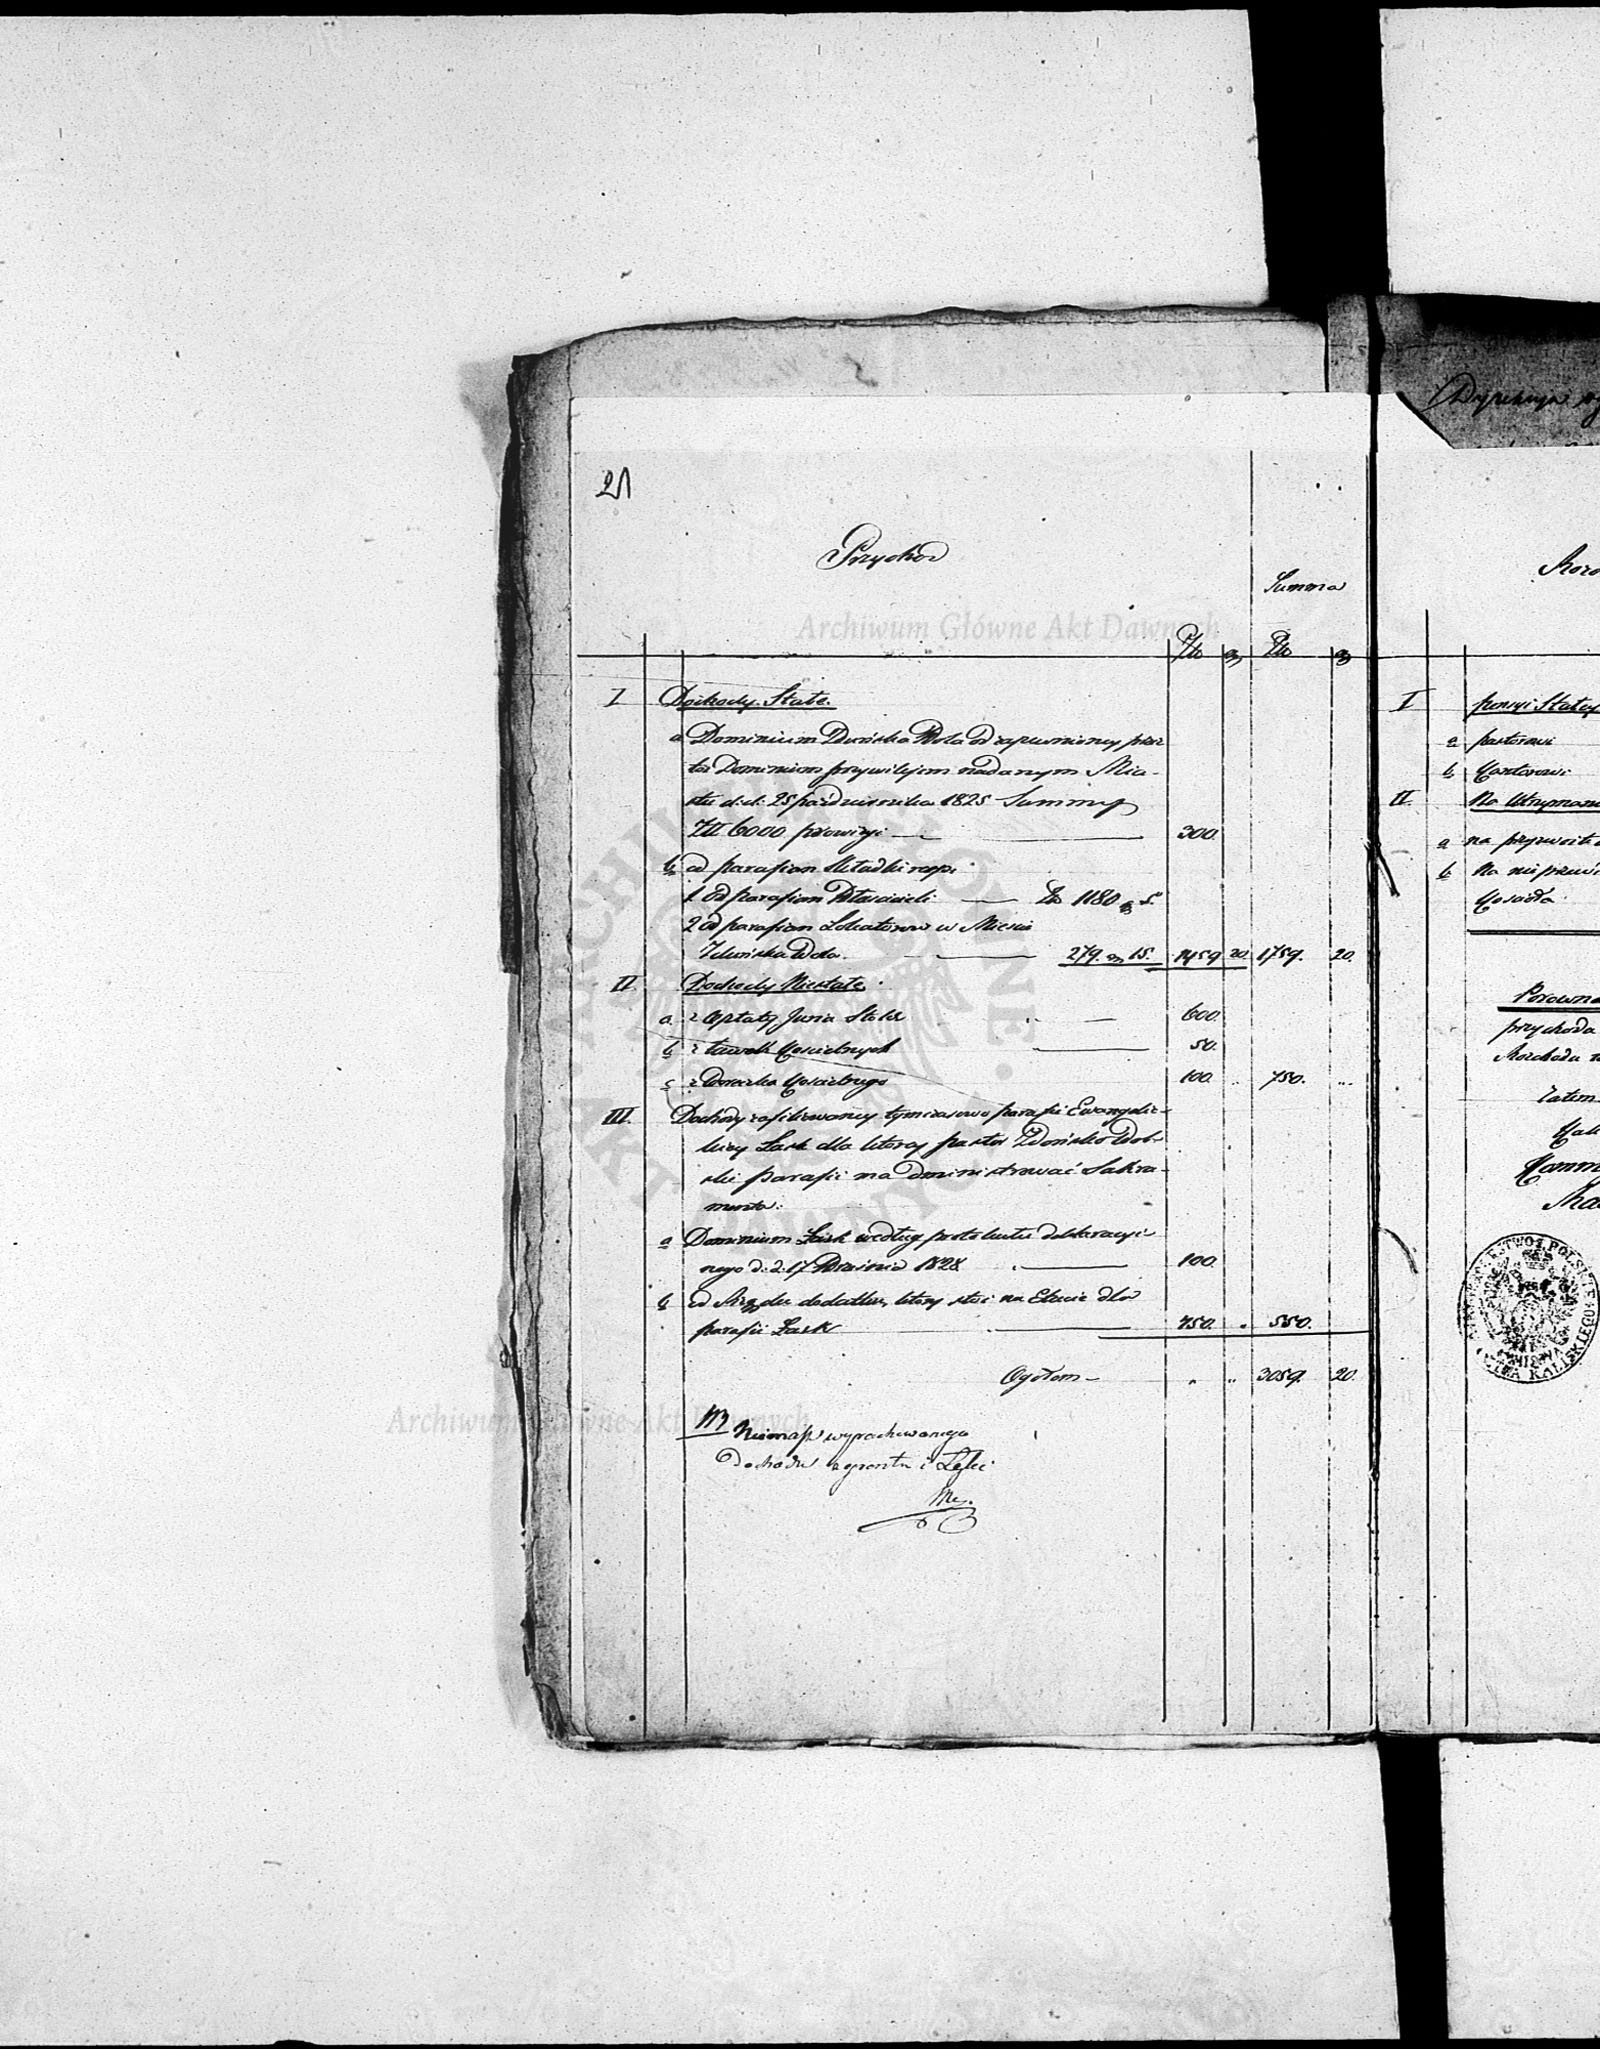 21
Przychod
Summa
Złt gr Złt gr
I Dochody Stałe.
a Dominium Zduńska Wola od zapewnioney przez
toż Dominium przywilejem nadanym Mia-
stu d.d. 25 października 1825 Summy
Złt 6000 prowizyi 300.
b od parafian Składki resp:
1 Od parafian Właścicieli Zł 1180 gr 5.
2 Od parafian Lokatorów w Mieście
Zduńska Wola. 279. gr 15. 1459 20 1759. 20.
II Dochody Niestałe.
a z Opłaty Juria Stolae 600.
b z Ławek Kościelnych 50.
c z Dzwonka Kościelnego 100. 750.
III. Dochody zafiliowaney tymczasowo parafii Ewangelic-
kiey Łask dla ktorey pastor Zduńsko Wol-
skiey parafii ma administrować Sakra-
menta:
a Dominium Łask według protokułu deklaracyi-
nego d. d. 17 Września 1828 100.
b od Rządu dodatku, ktory stoi na Etacie dla
parafii Łask 450. 550.
Ogółem 3059. 20.
NB Niemasz wyrachowanego
Dochodu z gruntu i Łąki
Archiwum Główne Akt Dawnych
Archiwum Główne Akt Dawnych
Dyrekcyi
I pensyi Stałey
a pastorowi
b Kantorowi
II Na Utrzymani
a na
b Na
Kościoła
Porowna
przychodu
Rozchodu
Zatem
Kal
Komm